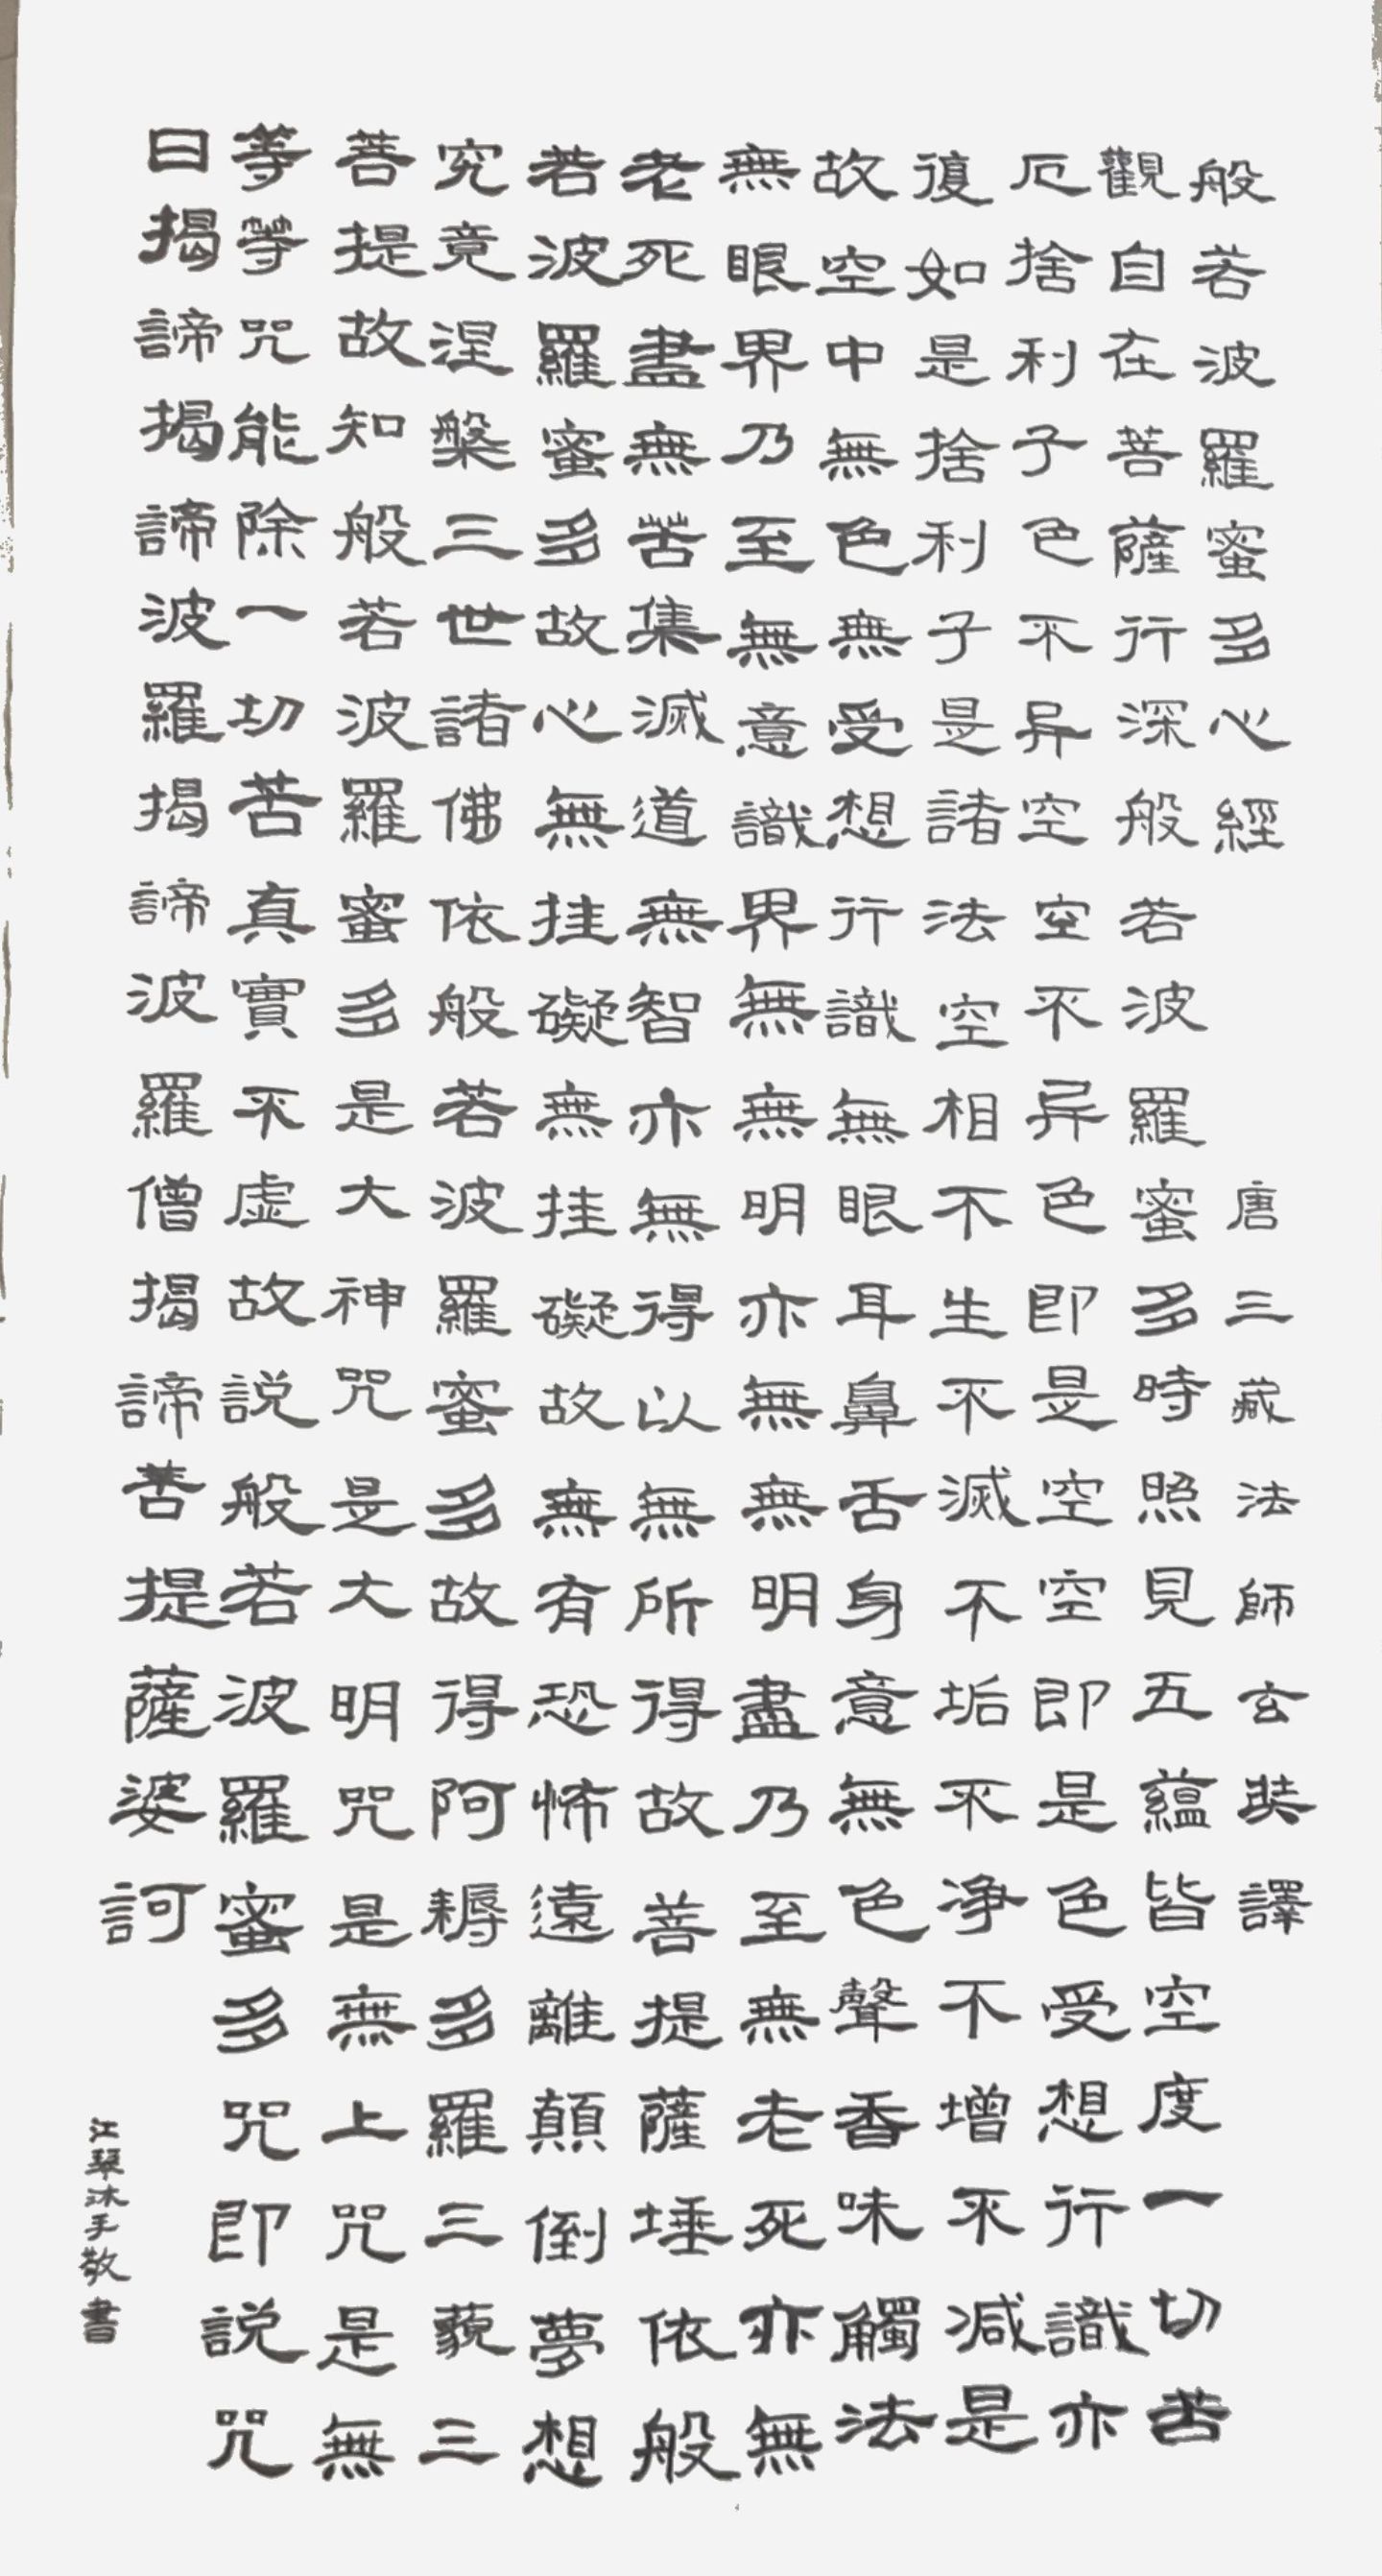 般若波羅蜜多心經 唐三藏法師玄奘譯
觀自在菩薩行深般若波羅蜜多時照見五蘊皆空度一切苦
厄捨利子色不异空空不异色即是空空即是色受想行識亦
復如是捨利子是諸法空相不生不滅不垢不净不增不减是
故空中無色無受想行識無眼耳鼻舌身意無色聲香味觸法
無眼界乃至無意識界無無明亦無無明盡乃至無老死亦無
老死盡無苦集滅道無智亦無得以無所得故菩提薩埵依般
若波羅蜜多故心無挂礙無挂礙故無有恐怖遠離顛倒夢想
究竟涅槃三世諸佛依般若波羅蜜多故得阿耨多羅三藐三
菩提故知般若波羅蜜多是大神咒是大明咒是無上咒是無
等等咒能除一切苦真實不虛故説般若波羅蜜多咒即説咒
曰揭諦揭諦波羅揭諦波羅僧揭諦菩提薩婆訶
江琴沐手敬書